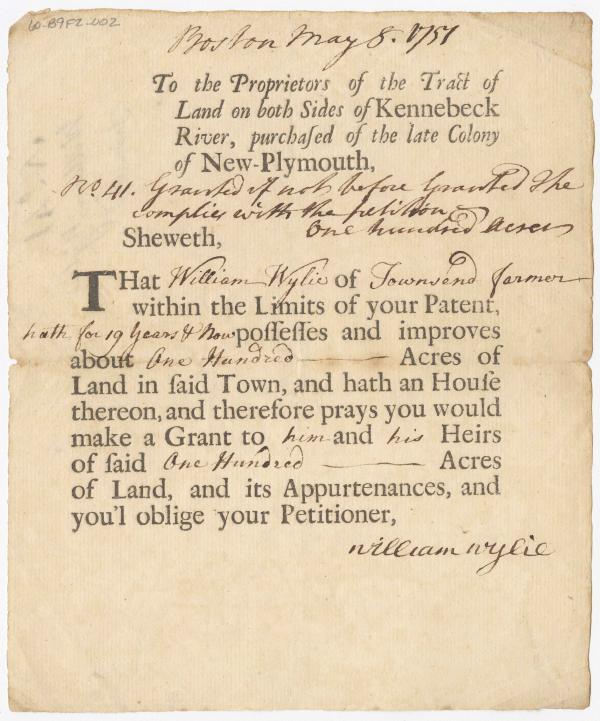 60-B9F2-U02
Boston May 8. 1751
To the Proprietors of the Tract of
Land on both Sides of Kennebeck
River, purchaſed of the late Colony
of New-Plymouth,
No. 41. Granted if not before Granted & he
complies with the petition
One hundred Acres
Sheweth,
THat William Wylie of Townsend farmer
within the Limits of your Patent,
hath for 19 Years & Now poſſeſſes and improves
about One Hundred Acres of
Land in ſaid Town, and hath an Houſe
thereon, and therefore prays you would
make a Grant to him and his Heirs
of ſaid One Hundred Acres
of Land, and its Appurtenances, and
you'l oblige your Petitioner,
William Wylie